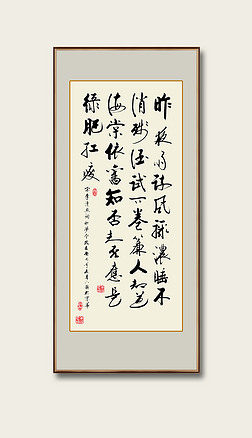 昨夜雨疏風驟濃睡不
消殘酒試問卷簾人却道
海棠依舊知否知否應是
綠肥紅瘦
宋李清照詞如夢令